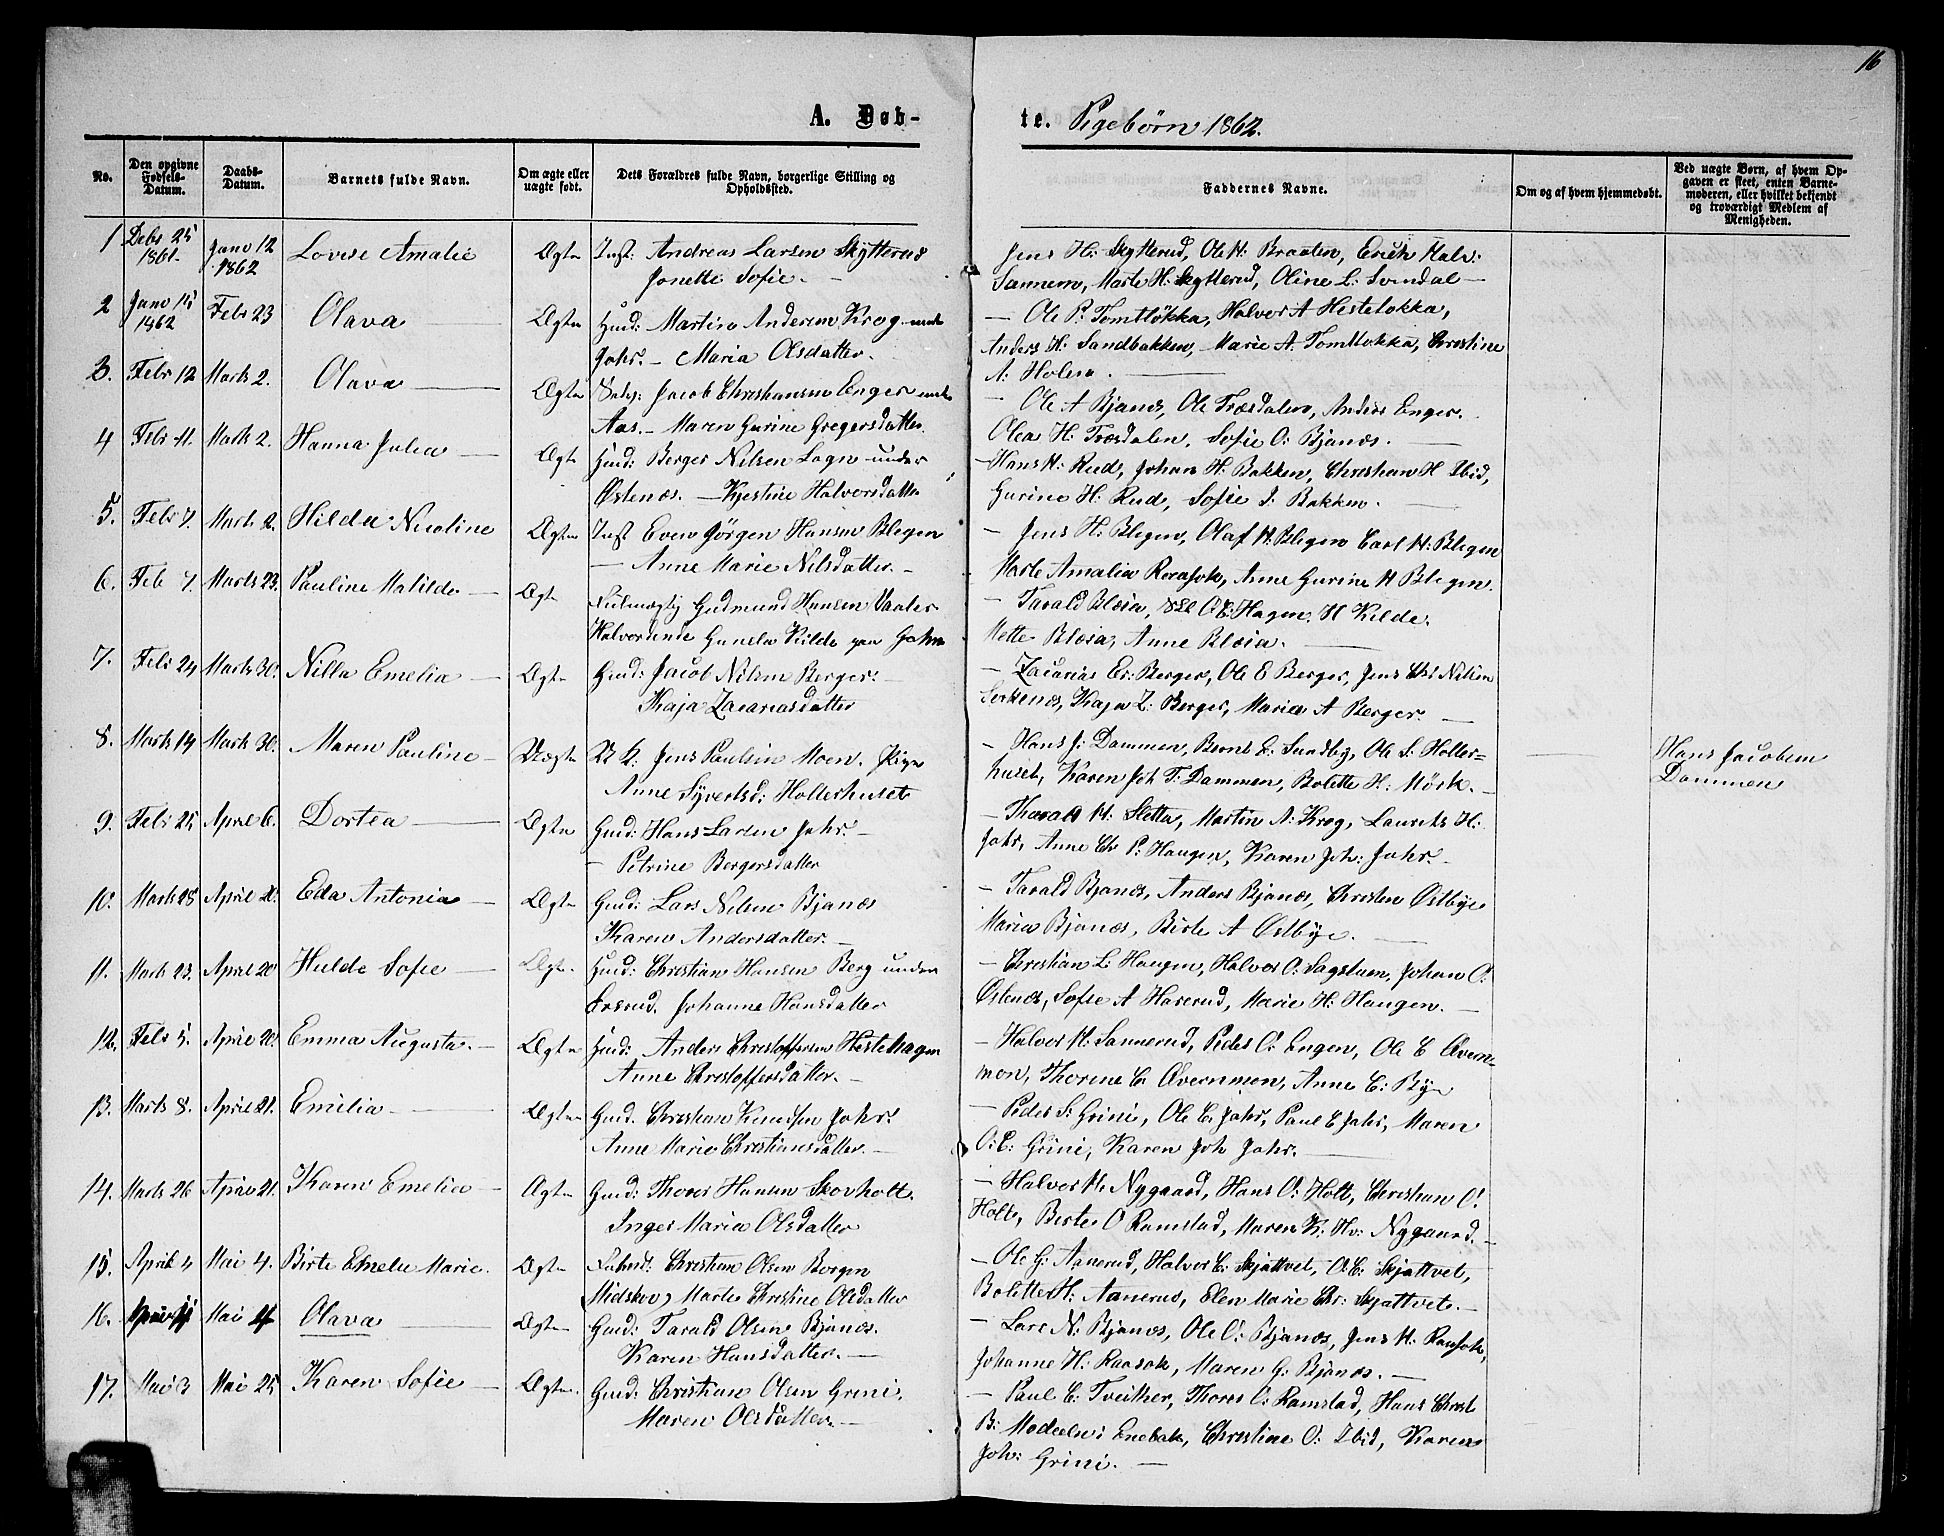 16
A. Døb-
te. Pigebørn 1862.
No.
Den opgivne Fødsels-Datum.
Daabs-Datum.
Barnets fulde Navn.
Om ægte eller uægte født.
Dets Forældres fulde Navn, borgerlige Stilling og Opholdssted.
Faddernes Navne.
Om og af hvem hjemmedøbt.
Ved uægte Børn, af hvem Opgaven er skeet, enten Barnemoderen, eller hvilket bekjendt og troværdigt Medlem af Menigheden.
1 Debr 25 1861. Janr 12 1862 Lovise Amalie Ægte Inst: Andreas Larsen Skytterud
Jonette Sofie. —
Jens H: Skytterud, Ole H. Braaten, Erich Halv:
Sannem, Marte H. Skytterud, Oline L. Svendal —
2 Janr 15 1862 Febr 23 Olava Ægte Gmd: Martin Andersen Krog
Jahr. — Maria Olsdatter.
— Ole P. Tomtløkka, Halvor A Hesteløkka,
Anders H. Sandbakken, Marie A. Tomtløkka, Christine
A. Holen. —
3. Febr 12 Marts 2. Olava — Ægte Jacob Christiansen Enger
Aas. — Maren Gurine Gregersdatter
— Ole A Bjanes, Ole Træsdalen, Anders Enger.
Olea H: Træsdalen, Sofie O: Bjanes. —
4 Febr 11. Marts 2. Hanna Julia — Ægte Gmd: Berger Nilsen Løgn under
Østenæs. — Kjestine Halvorsdatter
— Hans H: Rud, Johan H. Bakken, Christian H Ibid,
Gurine H: Rud, Sofie J. Bakken. —
5. Febr 7. Marts 2. Hilda Nicoline Ægte Inst Even Jørgen Hansen Blegen
— Anne Marie Nilsdatter. —
— Jens H. Blegen, Olaf H. Blegen Carl H. Blegen
Marte Amalia Rovasok, Anne Gurine H Blegen.
6. Feb 7. Marts 23. Pauline Matilde — Ægte Fulmægtig Gudmund Hansen Vaaler
Gunela Kilde paa Jahr
— Tarald Blæsia, O: E: Hagen, H Kilde,
Mette Blæsia, Anne Blæsia. —
7. Febr 24 Marts 30. Nilla Emelia — Ægte Gmd: Jacob Nilsen Berger. —
Kaja Zacariasdatter
— Zacarias Er: Berger, Ole E Berger, Jens Chr Nilsen
Kaja Z: Berger, Maria A Berger. —
8. Marts 14 Marts 30. Maren Pauline — Uægte U K: Jens Paulsen Moen. Pige
Anne Syvertsd: Hollerhuset
— Hans J: Dammen, Bernt E: Sundby, Ole S: Holler-
huset, Karen Joh T: Dammen, Bolette H: Mörk. —
—
Hans Jacobsen
Dammen
9. Febr 25 April 6. Dortea — Ægte Gmd: Hans Larsen Jahr. —
— Petrine Bergersdatter
— Tharald H: Sletta, Martin A: Krog, Laurits H:
Jahr, Anne Chr P: Haugen, Karen Joh: Jahr. —
10. Marts 25 April 20. Eda Antonia — Ægte Gmd: Lars Nilsen Bjanes
Karen Andersdatter. —
— Tarald Bjanes, Anders Bjanes, Christen Østbye
Maria Bjanes, Birte A Østbye. —
11. Marts 23. April 20 Hulde Sofie — Ægte. Gmd: Christian Hansen Berg under
Ersrud. Johanne Hansdatter
— Christian L: Haugen, Halvor O: Sagstuen, Johan O:
Østenæs, Sofie A Harerud, Marie H: Haugen. —
12. Febr 5. April 20. Emma Augusta. — Ægte Gmd: Anders Christoffersen Hestehagen
Anne Christoffersdatter. —
— Halvor H. Sannerud, Peder O: Engen, Ole E Øvern-
mon, Thorine E. Øvernmon, Anne E: Bye
13. Marts 8. April 21. Emilia — Ægte Gmd. Christian Knudsen Jahr.
Anne Marie Christiansdatter. —
— Peder S: Grini, Ole E. Jahr, Paul E Jahr, Maren
O: E: Grini, Karen Joh Jahr. —
14. Marts 26 April 21. Karen Emelia — Ægte Gmd: Thorer Hansen Skovholt.
Inger Maria Olsdatter
— Halvor H: Nygaard, Hans O: Holt, Christian O:
Holt, Birte O Ramstad, Maren K: Hv: Nygaard. —
15. April 4 Mai 4. Birte Emelie Marie. Ægte Christian Olsen Borgen
Midskov, Marte Christine Olsdatter
— Ole G: Aanerud, Halvor E: Skjattvet, O. E: Skjattvet,
Bolette H: Aanerud, Elen Marie Chr: Skjattvet. —
16. April 11 Mai 4 Olava — Ægte Gmd: Tarald Olsen Bjanes.
Karen Hansdatter. —
— Lars N: Bjanes, Ole O: Bjanes, Jens H: Raasok,
Johanne H: Raasok, Maren G: Bjanes. —
17. Mai 3 Mai 25 Karen Sofie — Ægte. Gmd: Christian Olsen Grini,
Maren Olsdatter. —
— Paul E: Tveither, Thorer O: Ramstad, Hans Christ
B: i Enebak, Christine O: Ibid, Karen
Joh: Grini. —